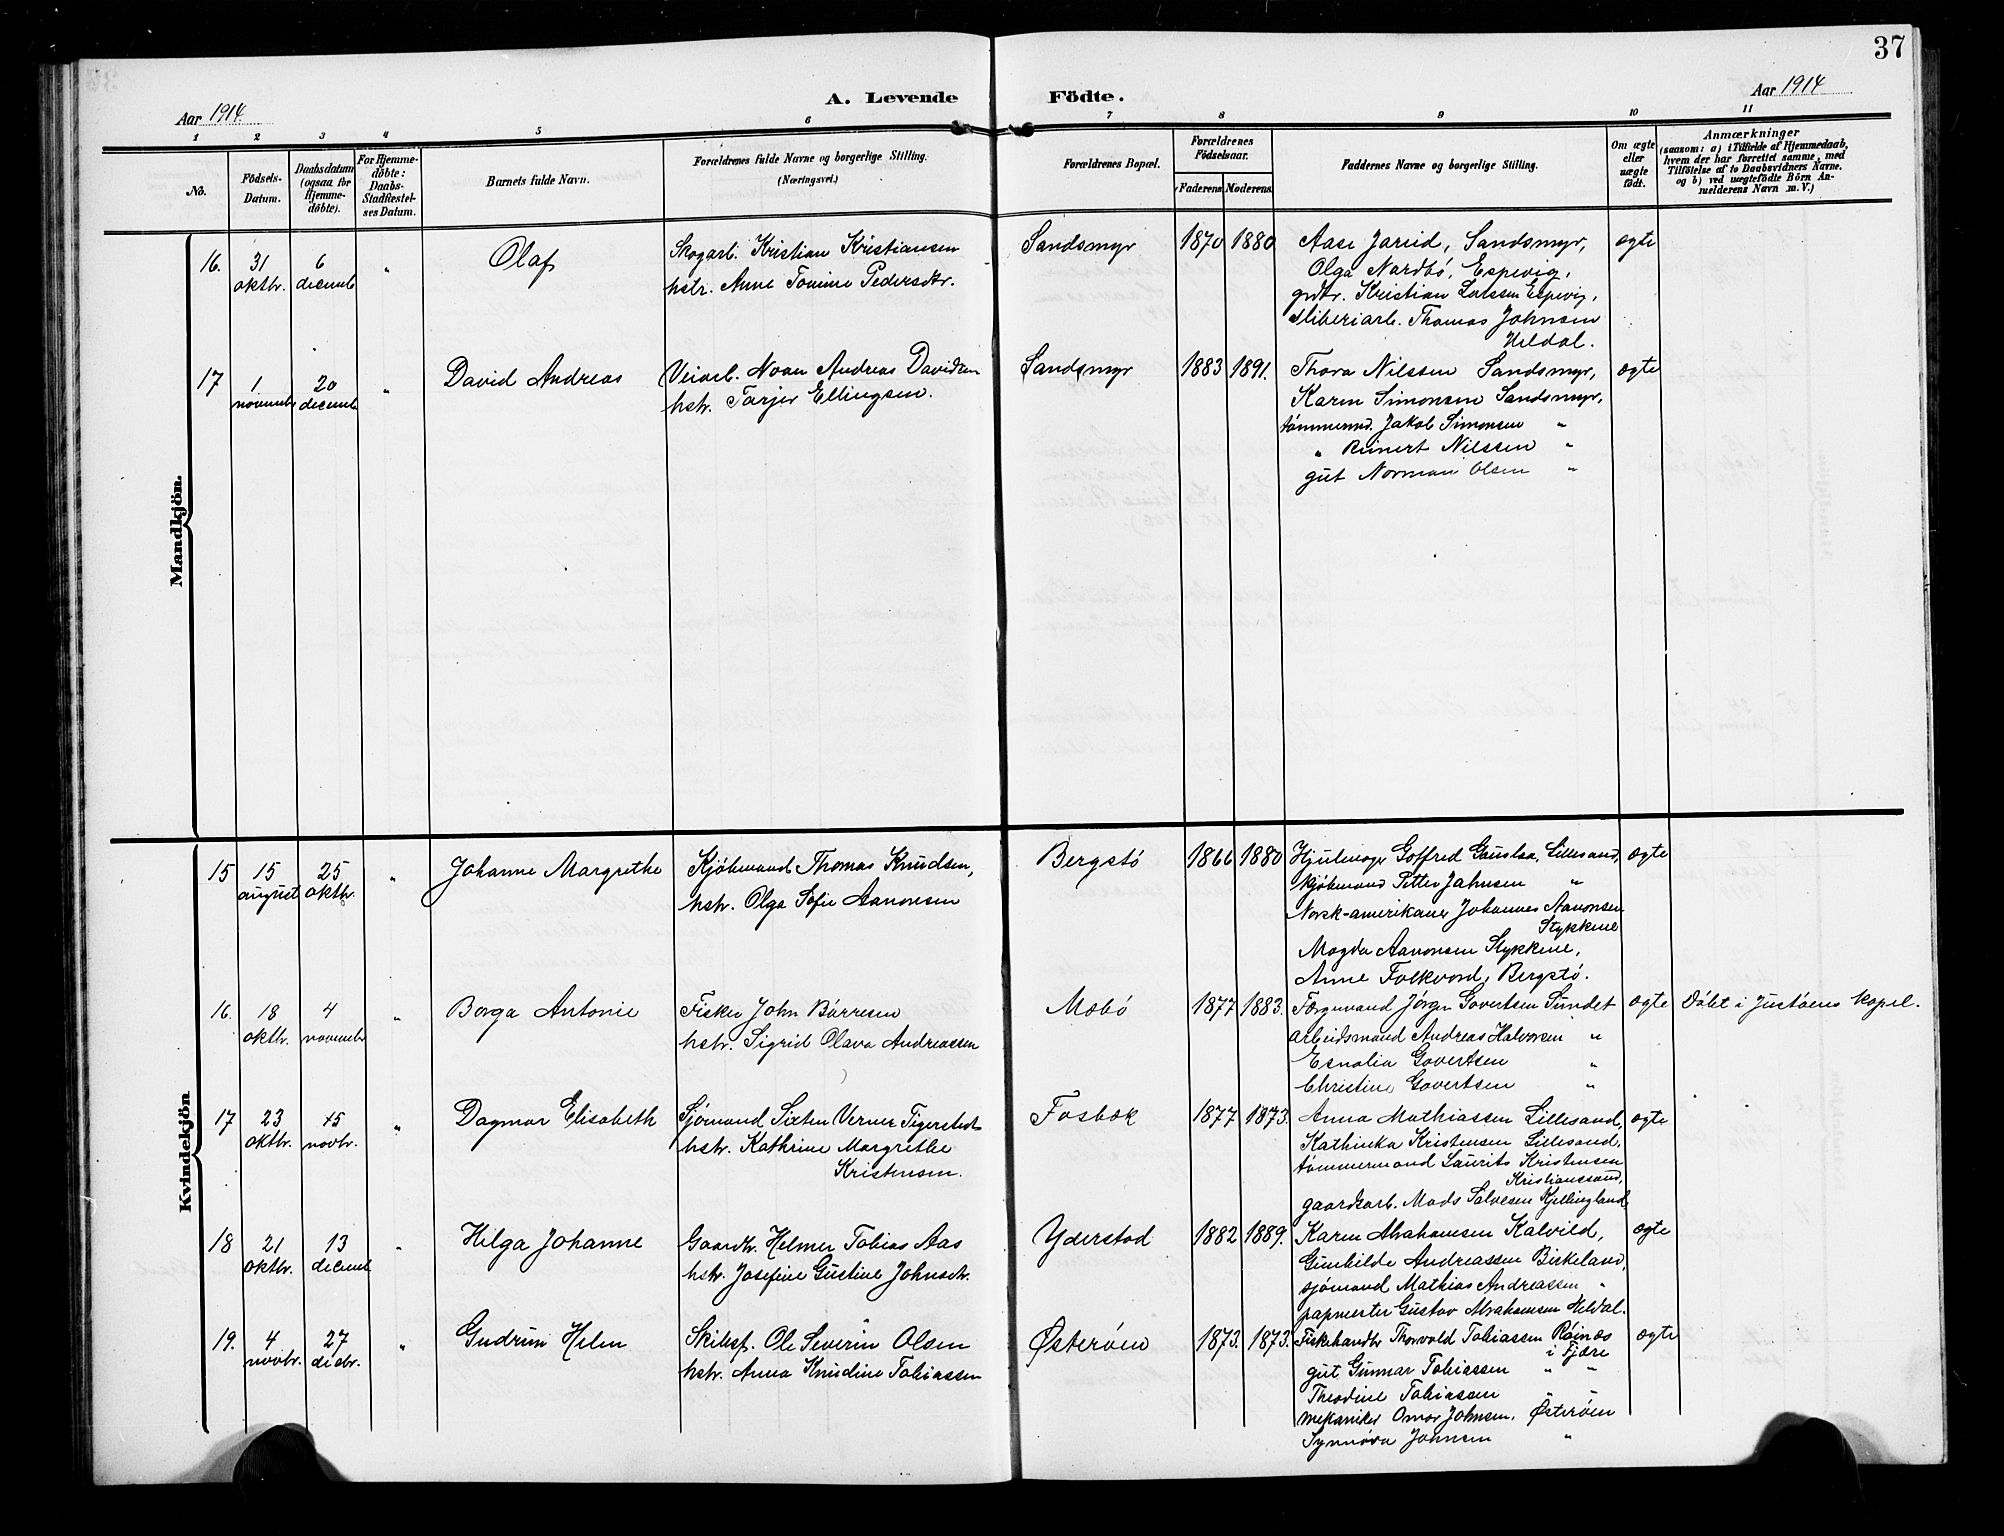 37
A. Levende Födte.
Aar 1914. Aar 1914
1 2 3 4 5 6 7 8 9 10 11
No.
Födsels-Datum.
Daabsdatum (ogsaa for Hjemme-döbte).
For Hjemme-döbte: Daabs-Stadfæstel-ses Datum.
Barnets fulde Navn.
Forældrenes fulde Navne og borgerlige Stilling.
(Næringsvei.)
Forældrenes Bopæl.
Forældrenes Födselsaar.
Faderens. Moderens.
Faddernes Navne og borgerlige Stilling.
Om ægte eller uægte födt.
Anmærkninger
(saasom: a) i Tilfælde af Hjemmedaab,
hvem der har forrettet samme, med
Tilföielse af to Daabsvidners Navne.
og b) ved uægtefödte Börn An-
melderens Navn m. V.)
Mandkjön.
16. 31 oktbr. 6 decemb " Olaf Skogarb. Kristian Kristiansen Sandsmyr 1870 1880 Aase Jareid, Sandsmyr, ægte
hstr. Anne Tomine Pedersdtr. Olga Nardbö, Espevig,
grdbr. Kristian Larssen Espevig,
sliberiarb. Thomas Johnsen
Heldal.
17 1 novembr 20 decemb " David Andreas Veiarb. Noan Andreas Davidsen Sandsmyr 1883 1891. Thora Nilssen Sandsmyr, ægte
hstr. Tarjer Ellingsen. Karen Simonsen Sandsmyr,
tömmermd. Jakob Simonsen "
" Reinert Nilssen "
gut Norman Olsen "
Kvindekjön
15 15 august 25 oktbr. " Johanne Margrethe Kjöbmand Thomas Knudsen, Bergstö 1866 1880 Hjulmager Gotfred Gauslaa, Lillesand, ægte
hstr. Olga Sofie Aanonsen kjöbmand Petter Jahnsen "
Norsk-amerikaner Johannes Aanonsen
Stykkene
Magda Aanonsen Stykkene,
Anne Folkvord, Bergstö.
16. 18 oktbr. 4 novembr " Borga Antonie Fisker John Börresen Mebö 1877 1883. Færgemand Jörgen Govertsen Sundet ægte Döbt i Justöens kapel.
hstr. Sigrid Olava Andreassen arbeidsmand Andreas Halvorsen "
Esnalia Govertsen "
Christine Govertsen "
17 23 oktbr. 15 novbr. " Dagmar Elisabeth Sjömand Sixten Verner Tigerstedt Fosbæk 1877 1873. Anna Mathiassen Lillesand, ægte
hstr. Kathrine Margrethe Kathinka Kristensen Lillesand,
Kristensen. tömmermand Laurits Kristensen
Kristianssand,
gaardsarb. Mads Salvesen Kjellingland
18 21 oktbr. 13 decemb " Helga Johanne Gaardbr. Helmer Tobias Aas Yderstad 1882 1889. Karen Abrahamsen Kalvild, ægte
hstr. Josefine Gustine Johnsdtr. Gunhilde Andreassen Birkeland,
sjömand Mathias Andreassen "
papmester Gustav Abrahamsen Heldal.
19. 4 novbr. 27 decbr. " Gudrun Helen Skibsf. Ole Severin Olsen Österöen 1873. 1873. Fiskehandlr Thorvald Tobiassen Röinæs ægte
hstr. Anna Knudine Tobiassen i Fjære
gut Gunnar Tobiassen " "
Theodine Tobiassen " "
mekaniker Omar Johnsen, Österöen
Synnöva Johnsen "